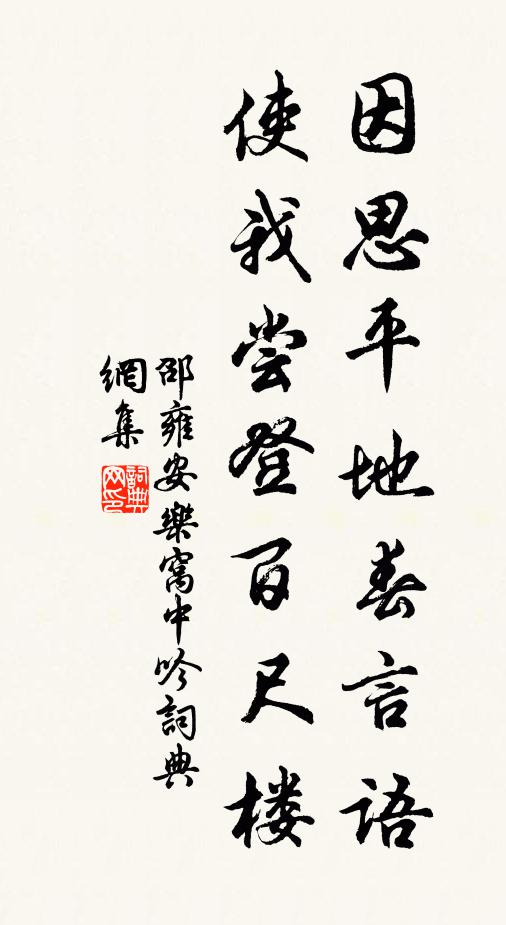 因思平地春言語
使我尝登百尺楼
邵雍安樂窩中吟詞典
網集
詞典網印